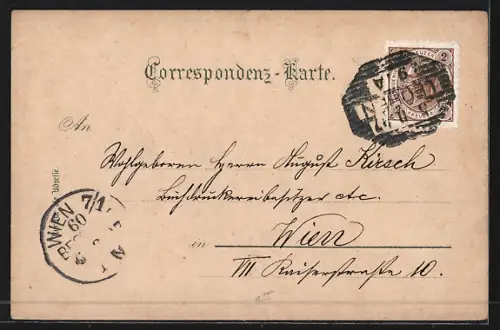 Correspondenz-Karte.
An
Wohlgeboren Herrn August Kirsch
Buchdruckereibesitzer etc.
in Wien
VII Kaiserstraße 10.
Adresse.
WIEN 7/1
60
2
2
WIEN